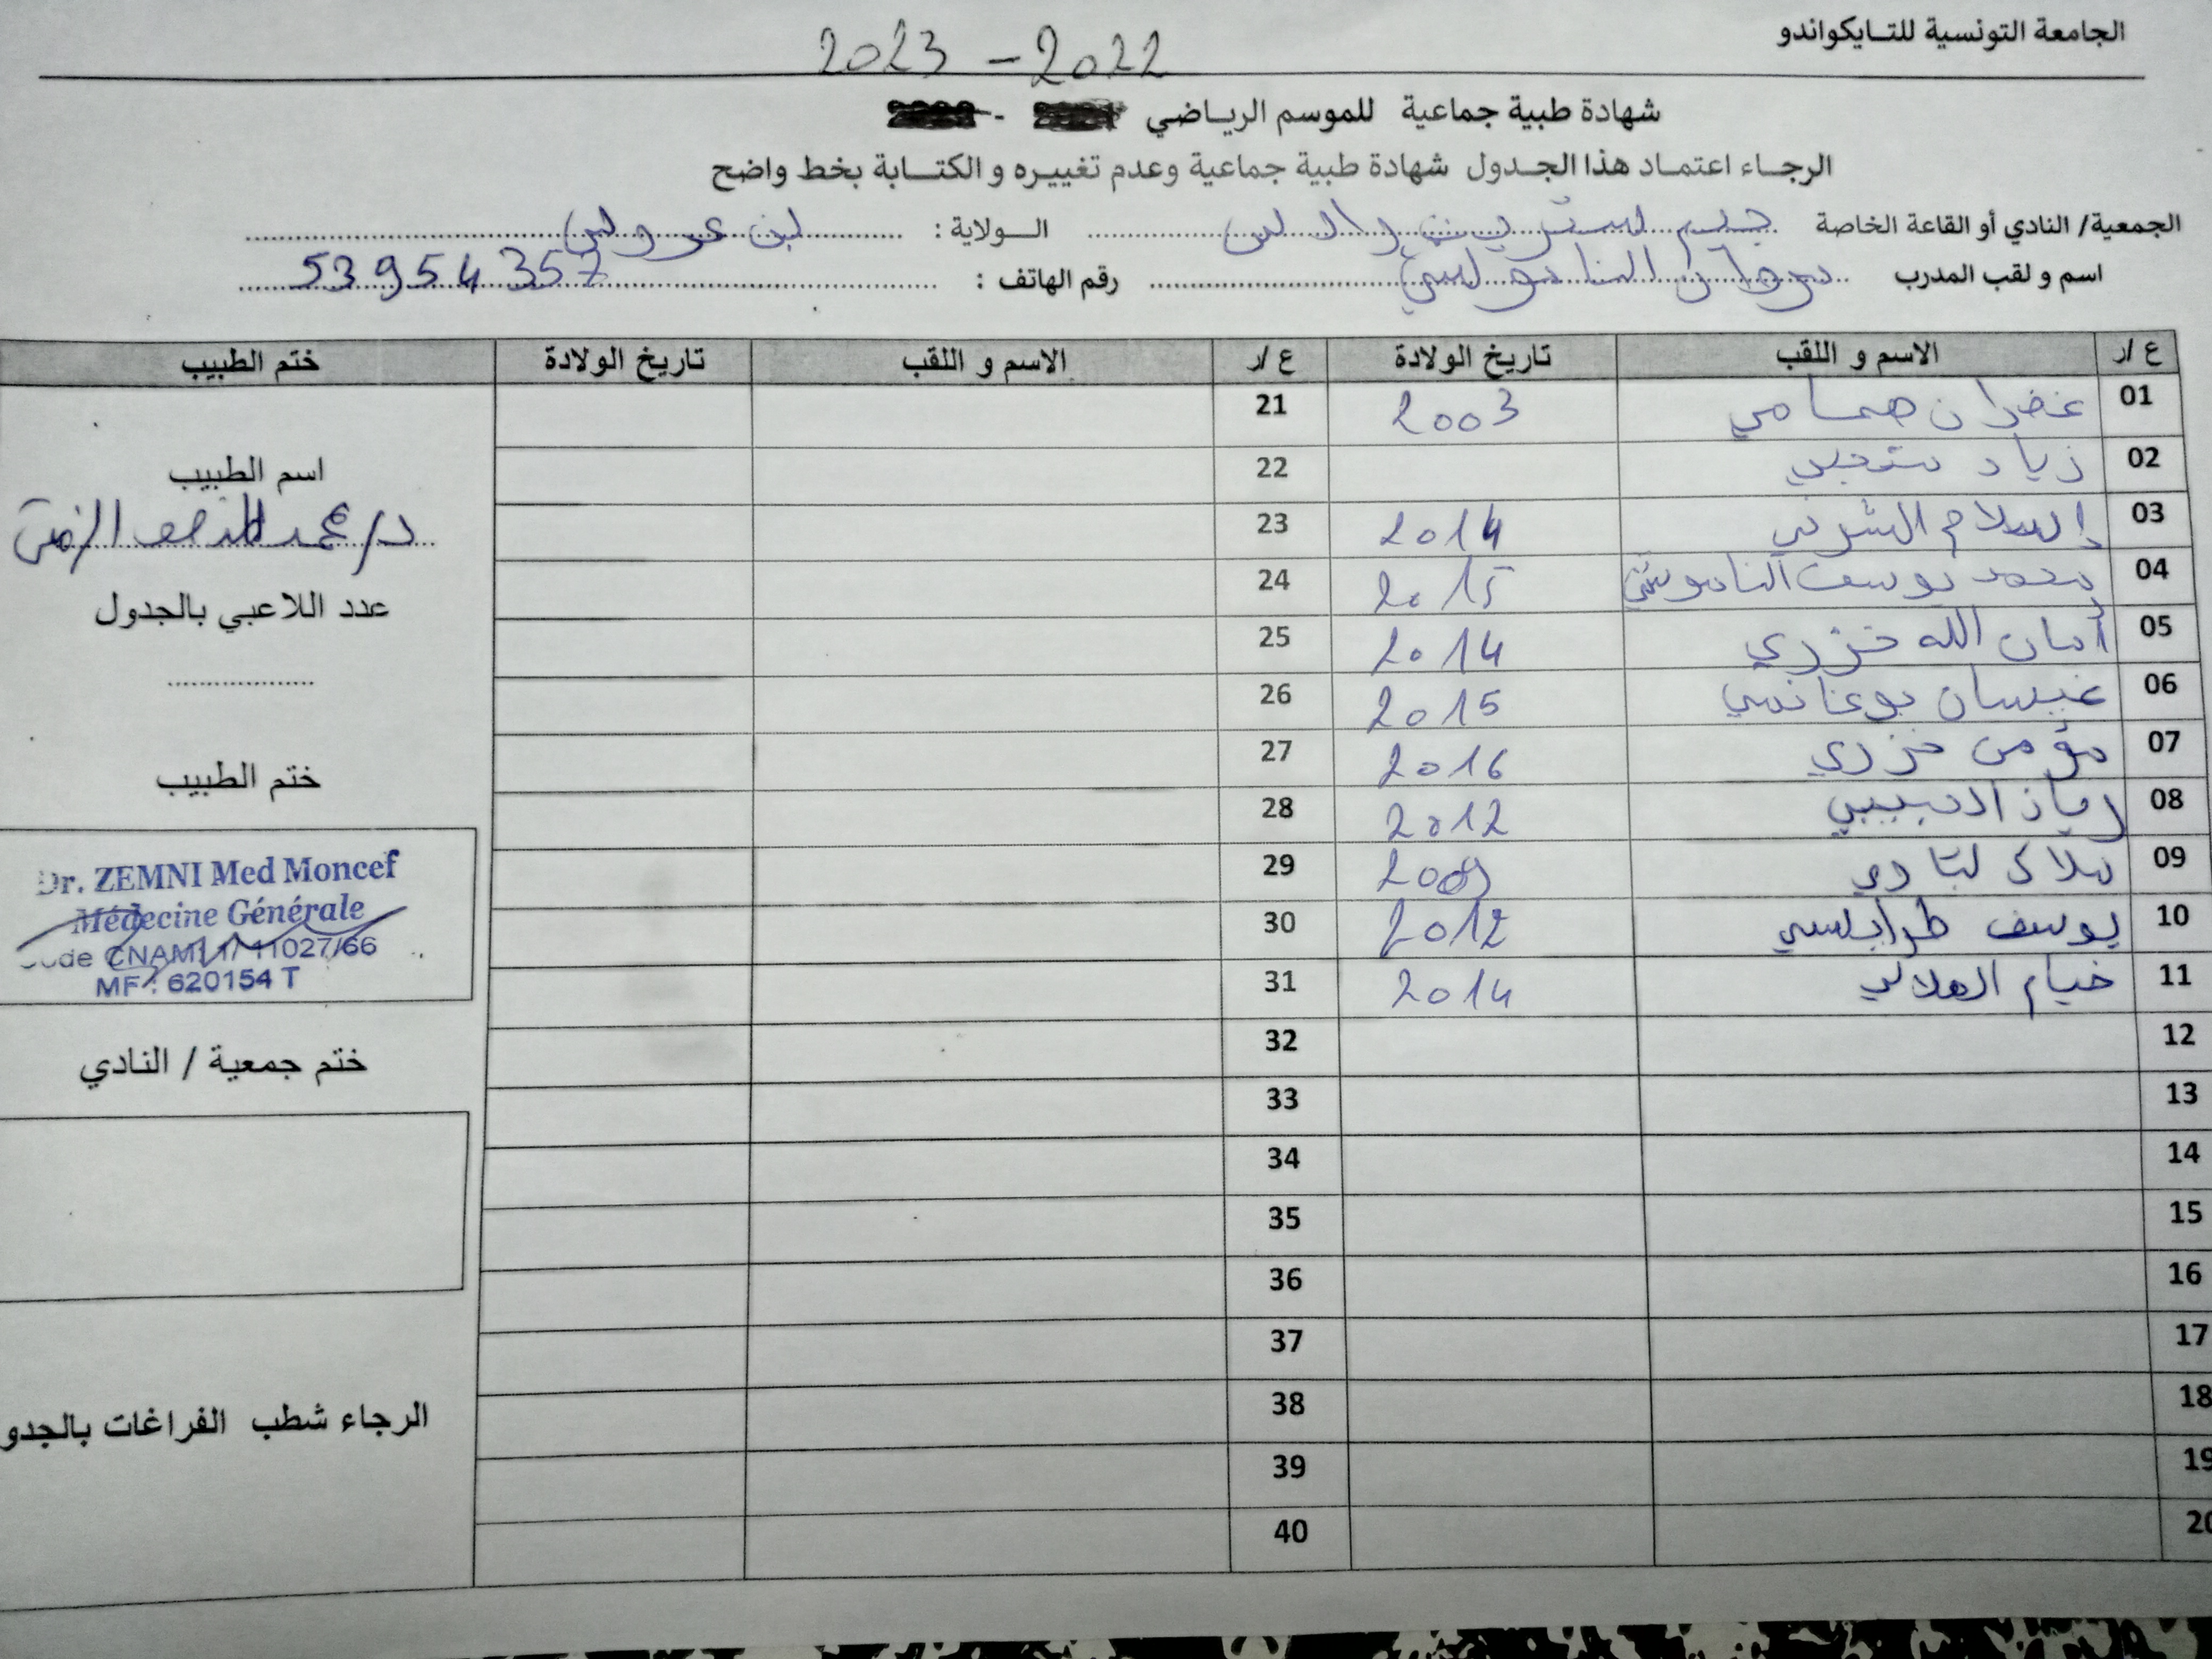 الجامعة التونسية للتـايكواندو
2023 - 2022
شهادة طبية جماعية للموسم الرياضي -
الرجاء اعتماد هذا الجدول شهادة طبية جماعية وعدم تغييره و الكتابة بخط واضح
الجمعية/ النادي أو القاعة الخاصة جيم ستريت دانس الولاية : بن عروس
اسم و لقب المدرب رقم الهاتف : 53954357
ع /ر الاسم و اللقب تاريخ الولادة ع /ر الاسم و اللقب تاريخ الولادة ختم الطبيب
01 غفران همامي 2003 21
02 زياد 22
اسم الطبيب
03 إسلام الشرني 2014 23
د/ محمد المنصف الزمني
04 محمد يوسف الناموشي 2015 24
عدد اللاعبي بالجدول
05 أمان الله خزري 2014 25
06 غيسان بوغانمي 2015 26
07 مؤمن خزري 2016 27
ختم الطبيب
08 الحبيبي 2012 28
Dr. ZEMNI Med Moncef
09 ملاك 2009 29
Médecine Générale
10 يوسف طرابلسي 2012 30
Code CNAM: 1/11027/66
MF : 620154 T
11 خيام الهلالي 2014 31
12 32
ختم جمعية / النادي
13 33
14 34
15 35
16 36
17 37
18 38
الرجاء شطب الفراغات بالجدو
19 39
20 40